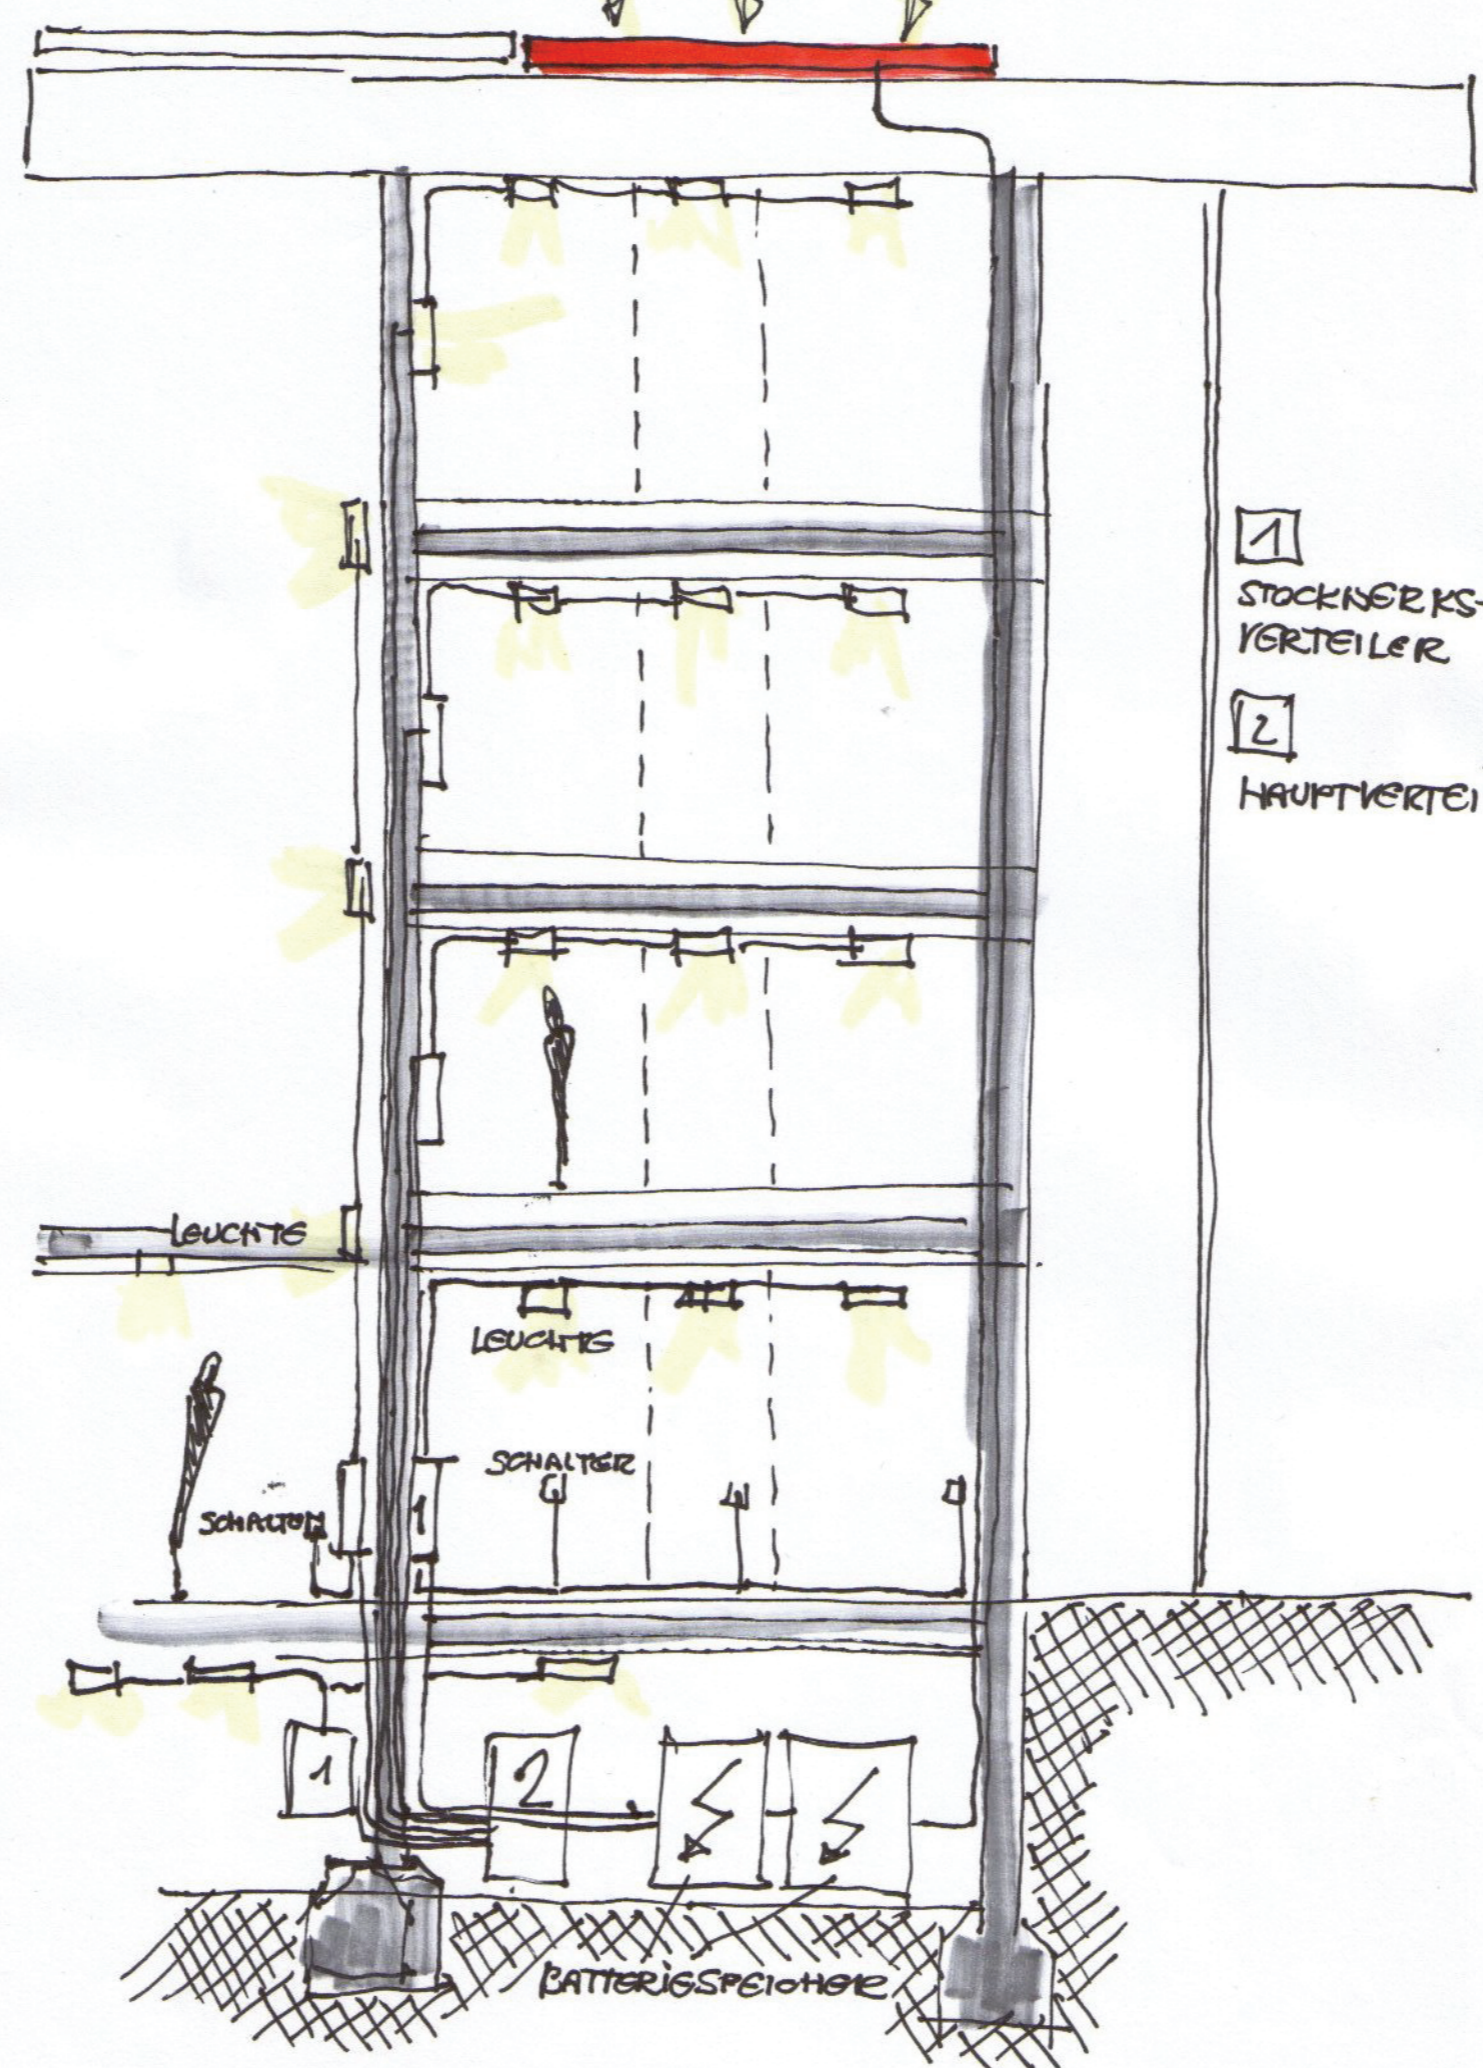 1
STOCKWERKS-
VERTEILER
2
HAUPTVERTEI
LEUCHTE
LEUCHTE
SCHALTER
SCHALTER
1
1
2
BATTERIESPEICHER